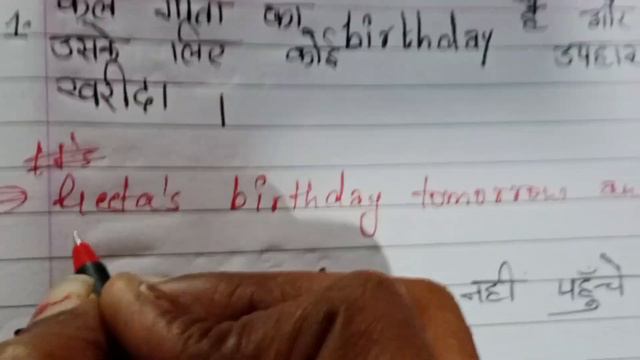 1. कल गीता का birthday है और
उसके लिए कोई उपहार
खरीदा ।
It's
⇒ Geeta's birthday tomorrow an
नही पहुँचे